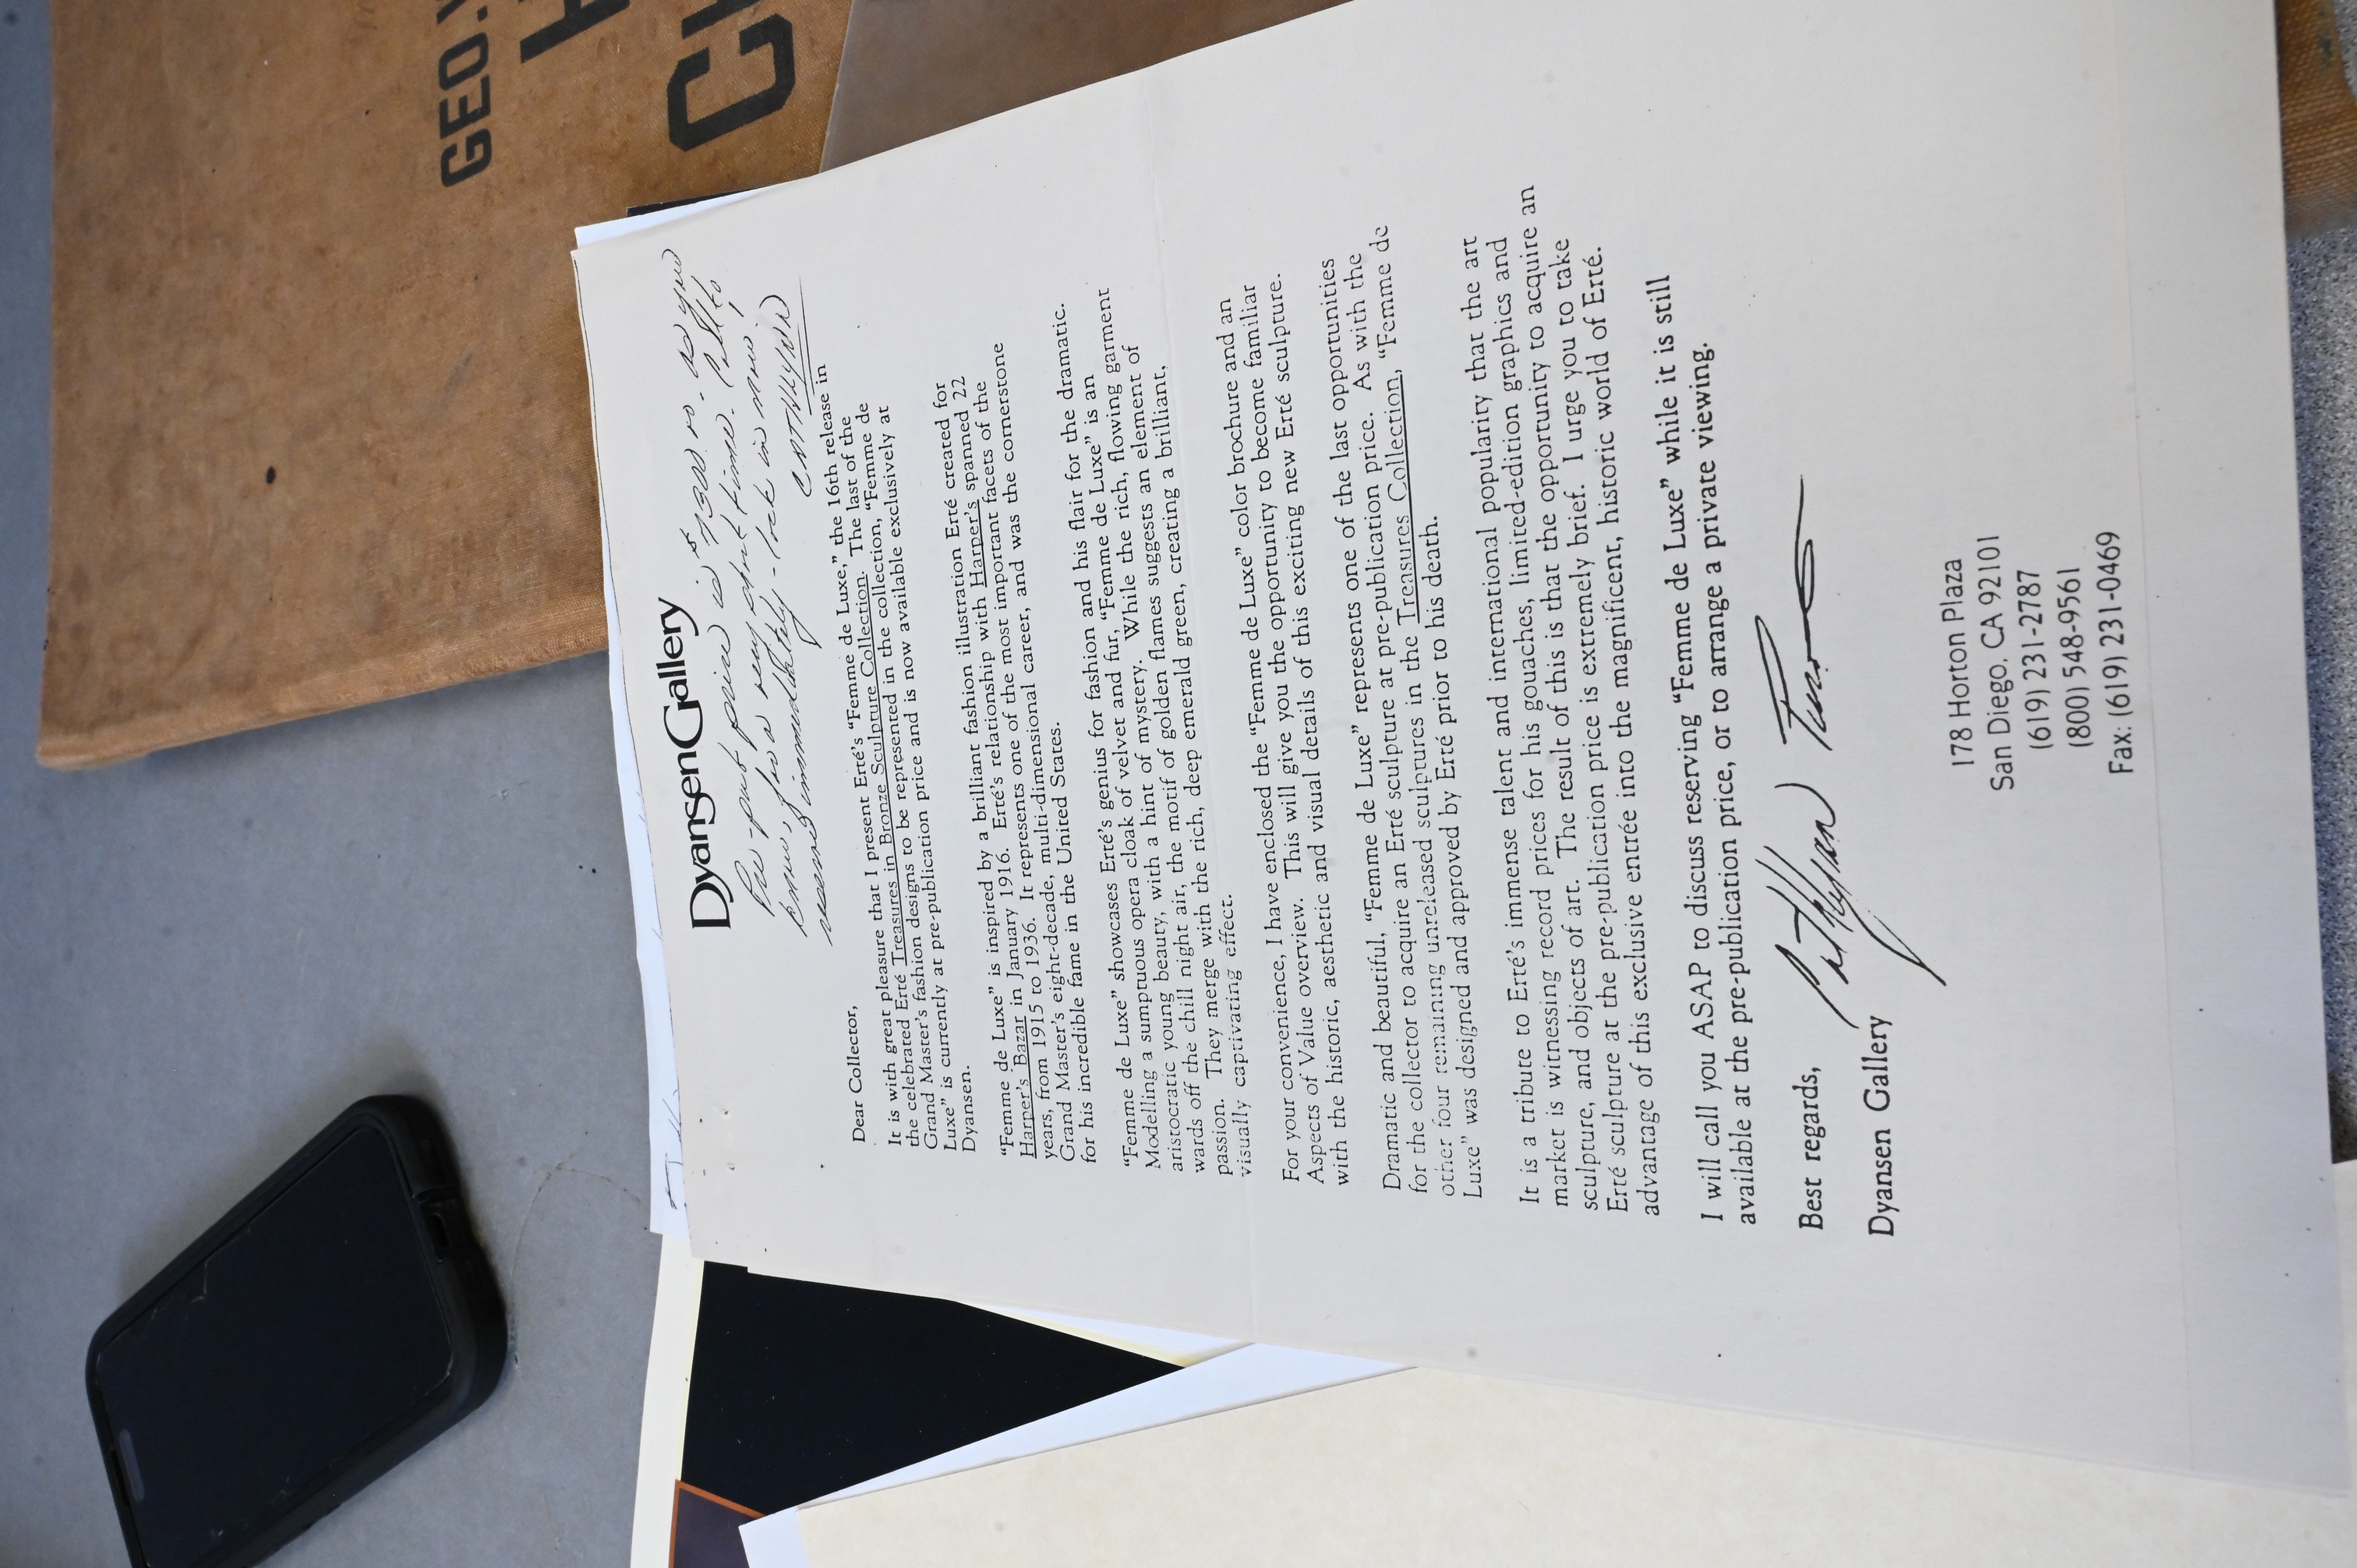 GEO.
DyansenGallery
Pre-pub price is $ 7500. - as you
know, for a very short time. Call to
reserve immediately - lock in now,
CATHRYNN
Dear Collector,
It is with great pleasure that I present Erté's “Femme de Luxe,” the 16th release in
the celebrated Erté Treasures in Bronze Sculpture Collection. The last of the
Grand Master's fashion designs to be represented in the collection, “Femme de
Luxe” is currently at pre-publication price and is now available exclusively at
Dyansen.
“Femme de Luxe” is inspired by a brilliant fashion illustration Erté created for
Harper's Bazar in January 1916. Erté's relationship with Harper's spanned 22
years, from 1915 to 1936. It represents one of the most important facets of the
Grand Master's eight-decade, multi-dimensional career, and was the cornerstone
for his incredible fame in the United States.
“Femme de Luxe” showcases Erté's genius for fashion and his flair for the dramatic.
Modelling a sumptuous opera cloak of velvet and fur, “Femme de Luxe” is an
aristocratic young beauty, with a hint of mystery. While the rich, flowing garment
wards off the chill night air, the motif of golden flames suggests an element of
passion. They merge with the rich, deep emerald green, creating a brilliant,
visually captivating effect.
For your convenience, I have enclosed the “Femme de Luxe” color brochure and an
Aspects of Value overview. This will give you the opportunity to become familiar
with the historic, aesthetic and visual details of this exciting new Erté sculpture.
Dramatic and beautiful, “Femme de Luxe” represents one of the last opportunities
for the collector to acquire an Erté sculpture at pre-publication price. As with the
other four remaining unreleased sculptures in the Treasures Collection, “Femme de
Luxe” was designed and approved by Erté prior to his death.
It is a tribute to Erté's immense talent and international popularity that the art
market is witnessing record prices for his gouaches, limited-edition graphics and
sculpture, and objects of art. The result of this is that the opportunity to acquire an
Erté sculpture at the pre-publication price is extremely brief. I urge you to take
advantage of this exclusive entrée into the magnificent, historic world of Erté.
I will call you ASAP to discuss reserving “Femme de Luxe” while it is still
available at the pre-publication price, or to arrange a private viewing.
Best regards,
Dyansen Gallery
178 Horton Plaza
San Diego, CA 92101
(619) 231-2787
(800) 548-9561
Fax: (619) 231-0469